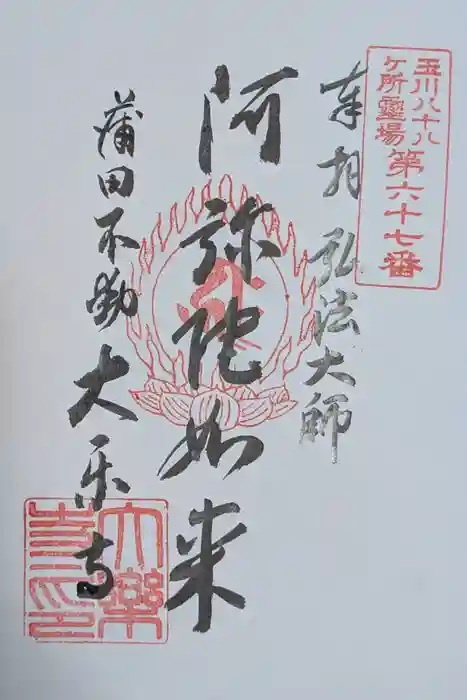 玉川八十八
ケ所靈場 第六十七番
奉拝 弘法大師
阿弥陀如来
蒲田不動 大楽寺
大樂
寺之印